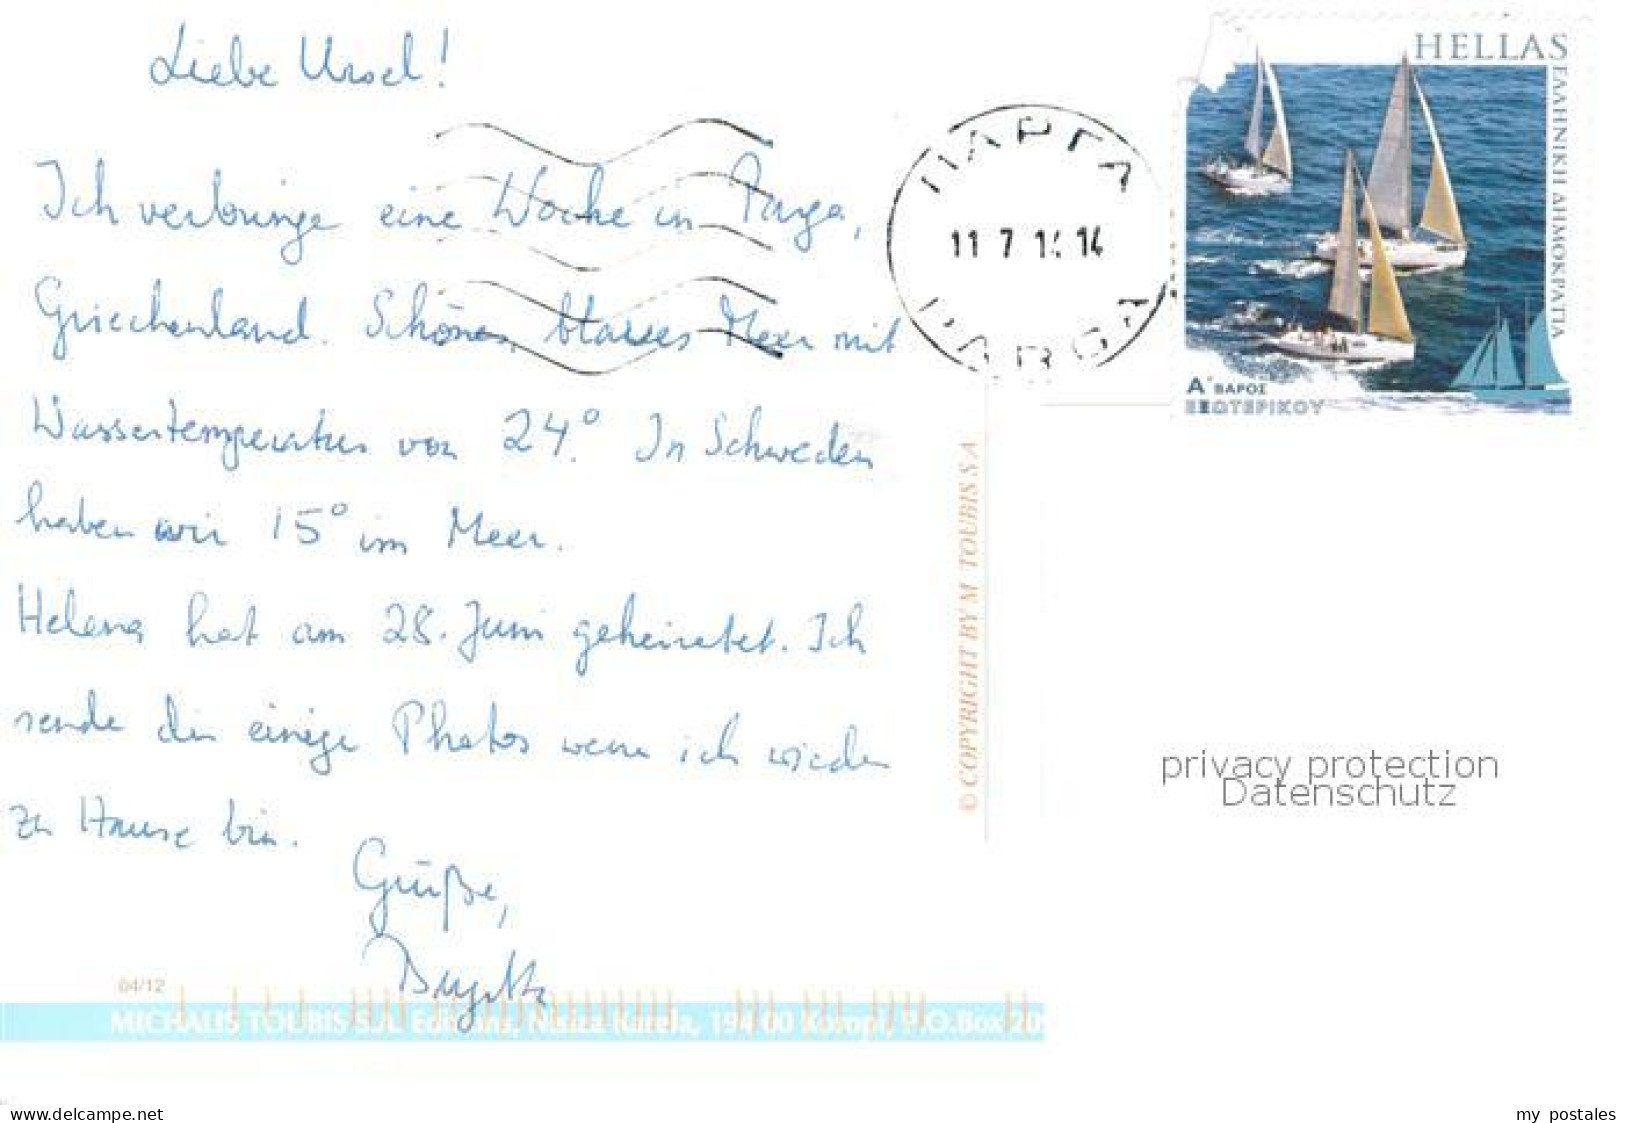 Liebe Ursel!
Ich verbringe eine Woche in Parga,
Griechenland. Schönes, blaues Meer mit
Wassertemperatur von 24.° In Schweden
haben wir 15° im Meer.
Helena hat am 28. Juni geheiratet. Ich
sende dir einige Photos wenn ich wieder
zu Hause bin.
Grüße,
Birgitta
04/12
MICHALIS TOUBIS S.A. Editions, Nisiza Karela, 194 00 Koropi, P.O.Box 20
© COPYRIGHT BY M. TOUBIS S.A
ΠΑΡΓΑ
11 7 14 14
HELLAS
ΕΛΛΗΝΙΚΗ ΔΗΜΟΚΡΑΤΙΑ
Α΄ ΒΑΡΟΣ
ΕΣΩΤΕΡΙΚΟΥ
privacy protection
Datenschutz
www.delcampe.net
my_postales